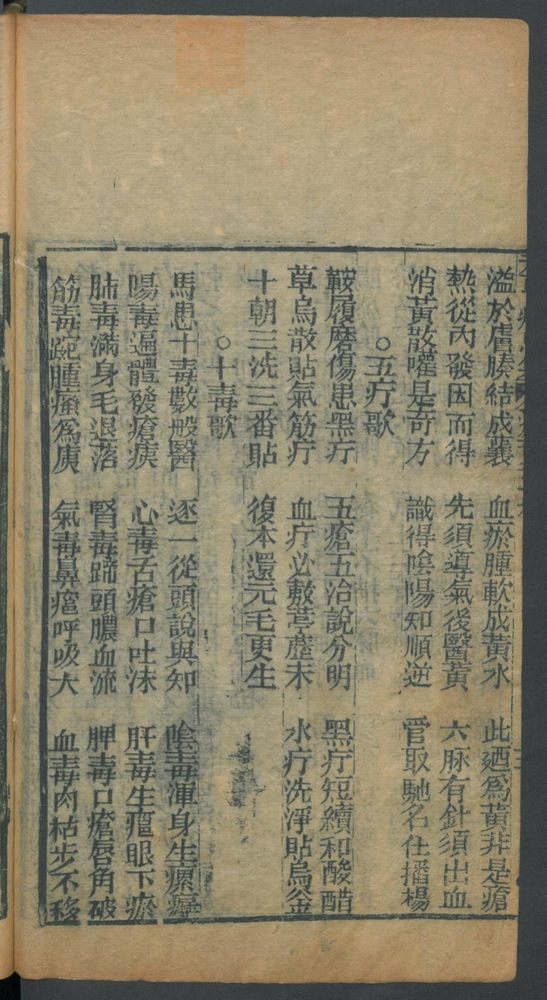 溢於膚腠結成囊　血瘀腫軟成黃水　此廼爲黃非是瘡
熱從內發因而得　先須導氣後醫黃　六脉有針須出血
消黃散嚾是奇方　識得陰陽知順逆　管取馳名任播楊
○五疔歌
鞍屨磨傷患黑疔　五瘡五治說分明　黑疔短續和酸醋
草烏散貼氣筋疔　血疔必敷葶藶末　水疔洗淨貼烏金
十朝三洗三番貼　復本還元毛更生
○十毒歌
馬患十毒數般醫　逐一從頭說與知　陰毒渾身生瘰癧
腸毒遍體發瘡痍　心毒舌瘡口吐沫　肝毒生瘟眼下瘀
肺毒滿身毛退落　腎毒蹄頭膿血流　脾毒口瘡唇角破
筋毒踠腫癢爲庚　氣毒鼻瘡呼吸大　血毒肉枯步不移